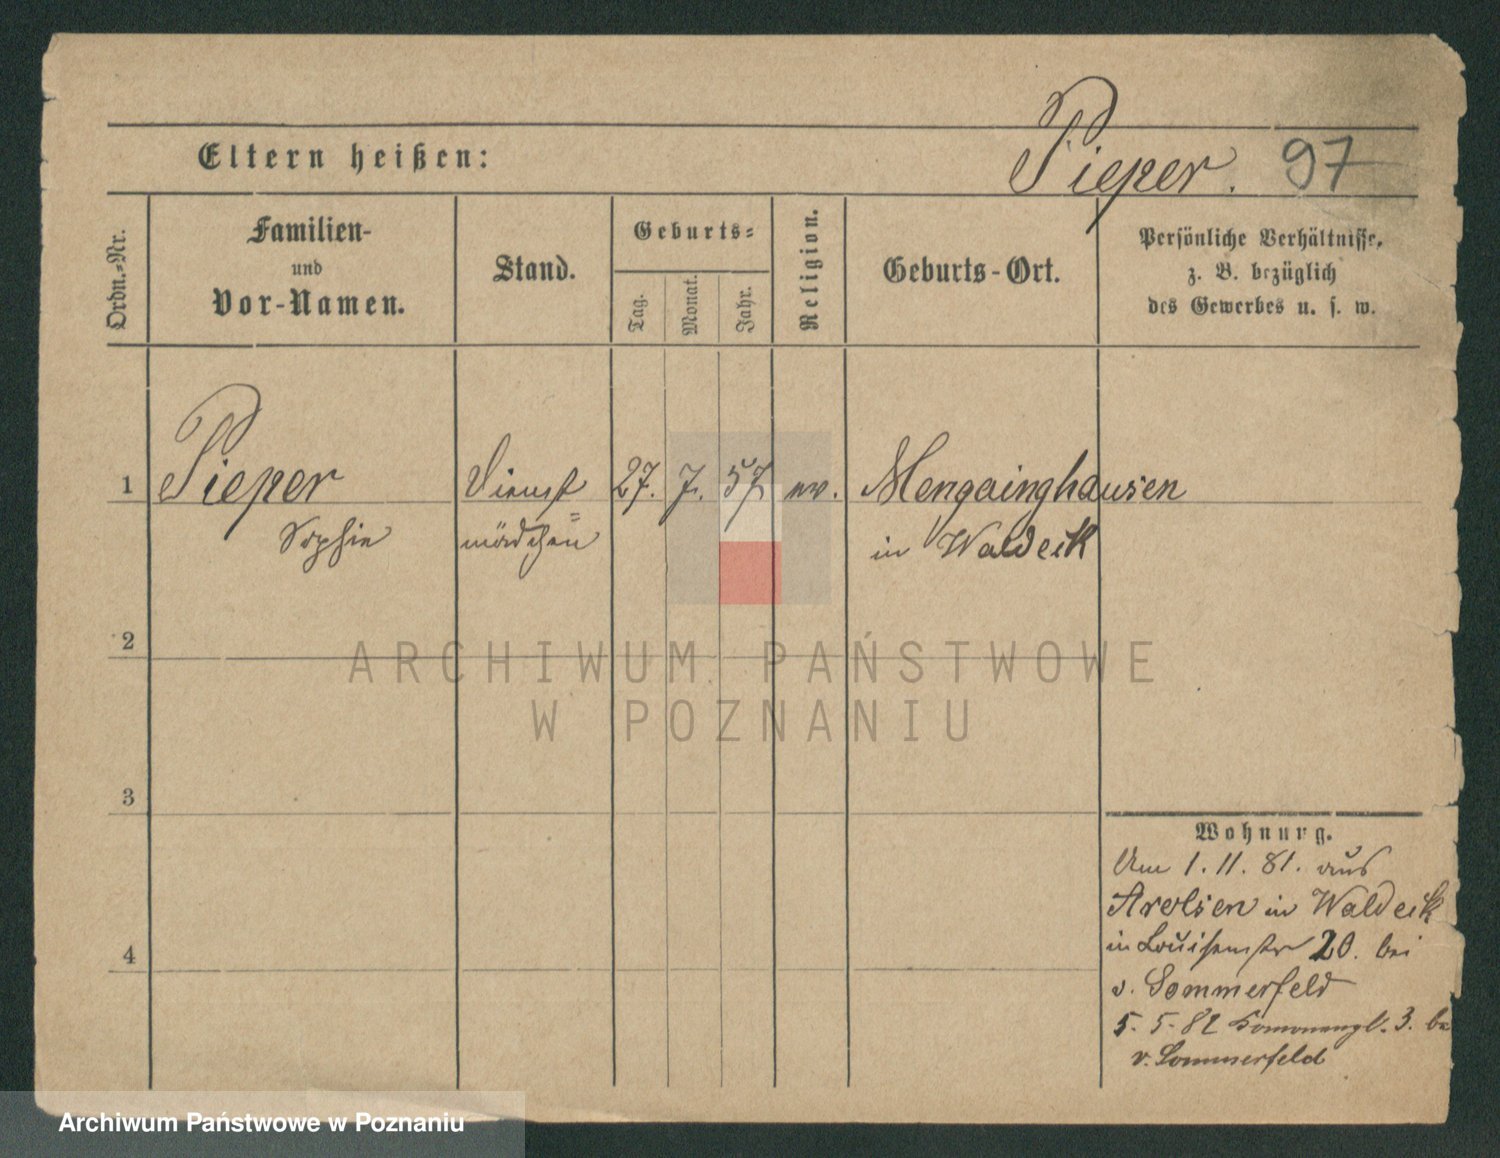 Eltern heißen:
Pieper. 97
Ordn.-Nr.
Familien-
und
Vor-Namen.
Stand.
Geburts-
Tag.
Monat.
Jahr.
Religion.
Geburts-Ort.
Persönliche Verhältnisse,
z. B. bezüglich
des Gewerbes u. s. w.
1 Pieper Dienst 27. 7. 57 ev. Mengeringhausen
Sophie mädchen in Waldeck
2
ARCHIWUM PAŃSTWOWE
W POZNANIU
3
4
Wohnung.
Am 1. 11. 81. aus
Arolsen in Waldeck
in Louisenstr 20. bei
v. Sommerfeld
5. 5. 82 3. be
v. Sommerfeld
Archiwum Państwowe w Poznaniu